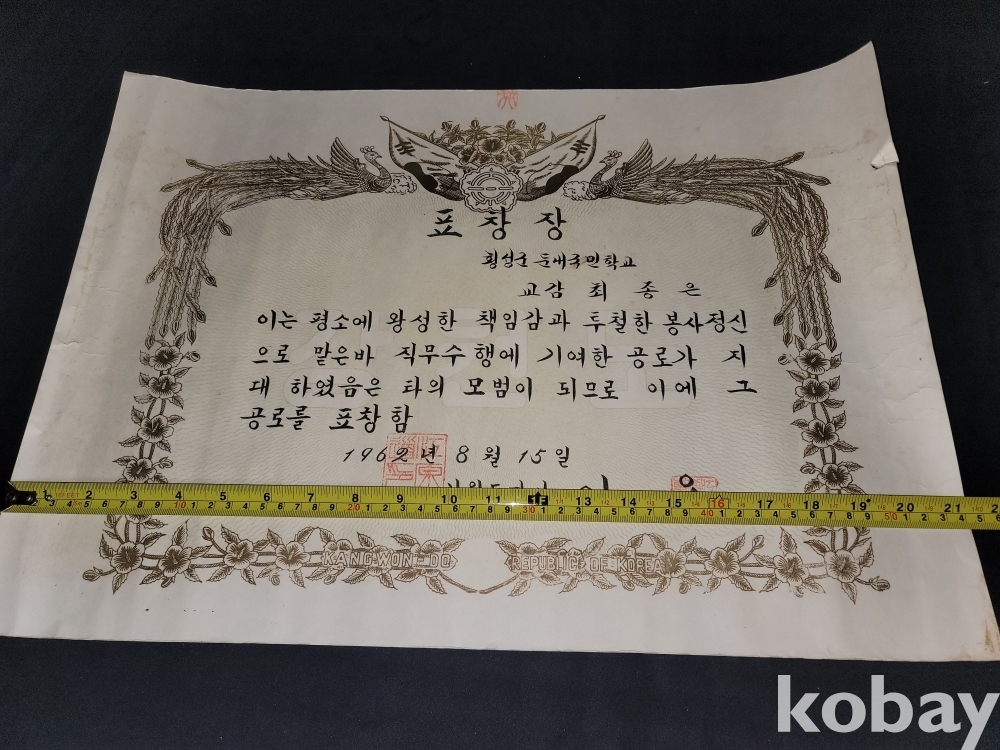 표창장
횡성군 둔내국민학교
교감 최종은
이는 평소에 왕성한 책임감과 투철한 봉사정신
으로 맡은바 직무수행에 기여한 공로가 지
대 하였음은 타의 모범이 되므로 이에 그
공로를 표창함
1962년 8월 15일
KANG-WON-DO REPUBLIC OF KOREA
kobay